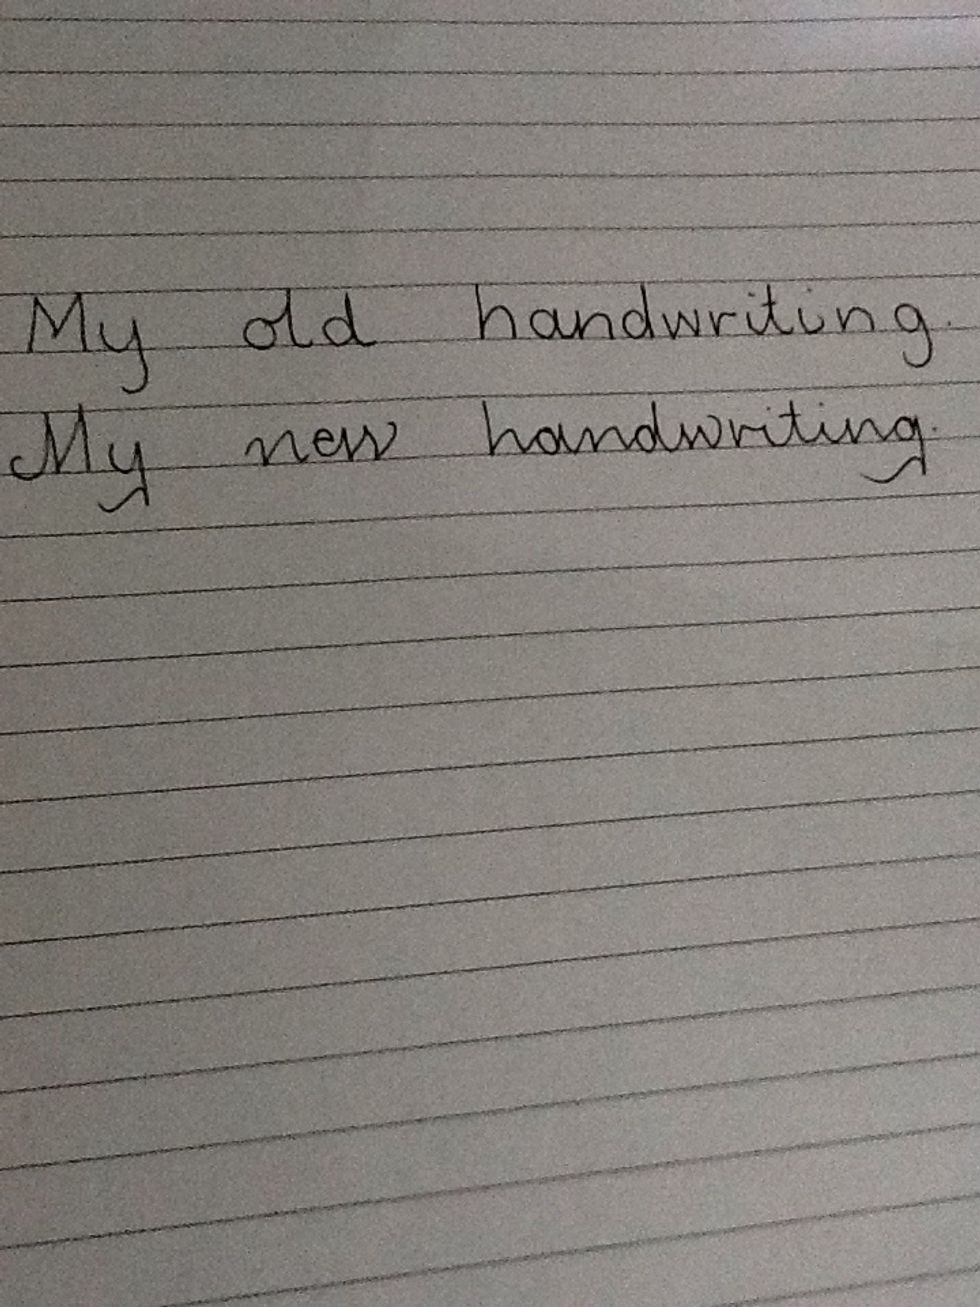 My old handwriting.
My new handwriting.